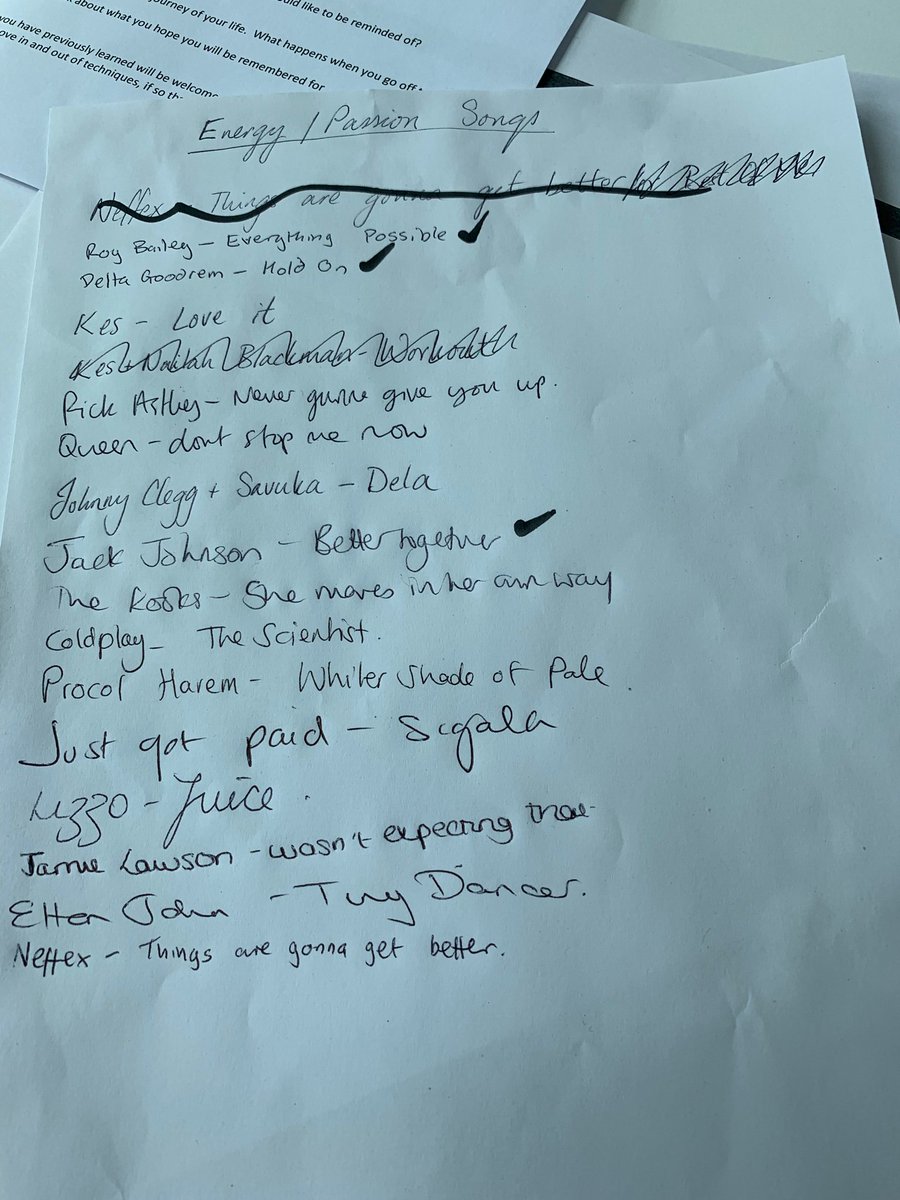 ould like to be reminded of?
ourney of your life. What happens when you go off
about what you hope you will be remembered for
you have previously learned will be welcome
ove in and out of techniques, if so th
Energy / Passion Songs
Neffex - Things are gonna get better
Roy Bailey - Everything Possible ✔
Delta Goodrem - Hold On ✔
Kes - Love it
Kes + Nailah Blackman - Workouth
Rick Astley - Never gunne give you up.
Queen - dont stop me now
Johnny Clegg + Savuka - Dela
Jack Johnson - Better together ✔
The Kooks - She moves in her own way
Coldplay - The Scientist.
Procol Harem - Whiter Shade of Pale.
Just got paid - Sigala
Lizzo - Juice.
Jamie Lawson - wasn't expecting that
Elton John - Tiny Dancer.
Neffex - Things are gonna get better.